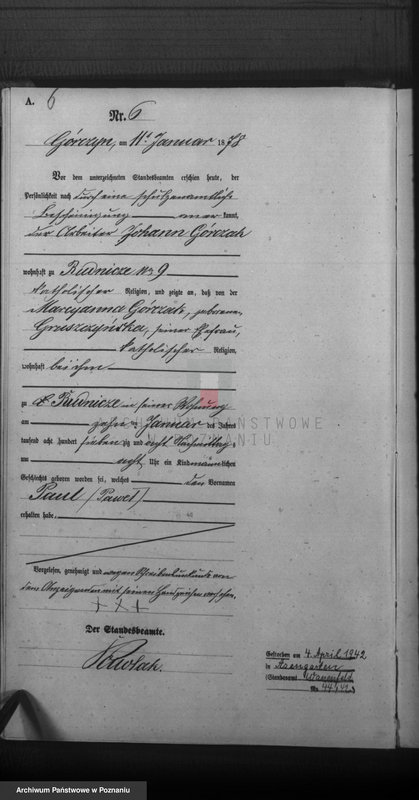 A. 6
Nr. 6
Górczyn, am 11t Januar 1878
Vor dem unterzeichneten Standesbeamten erschien heute, der
Persönlichkeit nach durch eine schulzenamtliche
Bescheinigung kannt,
der Arbeiter Johann Górczak
wohnhaft zu Rudnicze No 9
katholischer Religion, und zeigte an, daß von der
Maryanna Górczak, geborenen
Gruszczyńska, seiner Ehefrau,
katholischer Religion,
wohnhaft bei ihm
zu Rudnicze in seiner Wohnung
am zehn Januar des Jahres
tausend acht hundert siebenzig und acht Nachmittags
um acht Uhr ein Kind männlichen
Geschlechts geboren worden sei, welches den Vornamen
Paul (Paweł)
erhalten habe.
Vorgelesen, genehmigt und wegen Schreibensunkunde von
dem Anzeigenden mit seinem Handzeichen versehen.
+ X +
Der Standesbeamte.
Gestorben am 4. April 1942
in
(Standesamt
No.
ARCHIWUM PAŃSTWOWE
W POZNANIU
Archiwum Państwowe w Poznaniu